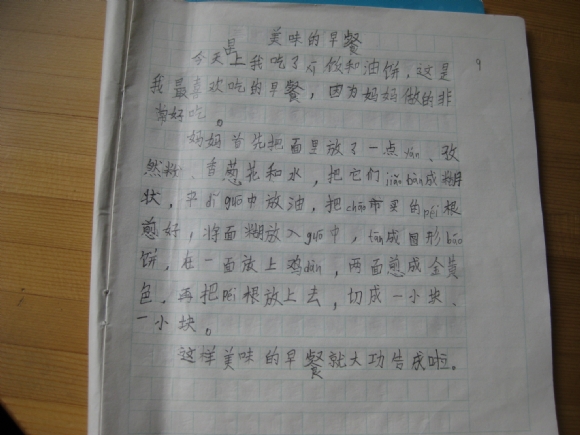 美味的早餐
今天早上我吃了 饺和油饼，这是
我最喜欢吃的早餐，因为妈妈做的非
常好吃。
妈妈首先把面里放了一点yán、孜
然粉、香葱花和水，把它们jiǎo bàn成糊
状，平dǐ guō中放油，把chāo市买的péi根
煎好，将面糊放入guō中，tān成圆形báo
饼，在一面放上鸡dàn，两面煎成金黄
色，再把péi根放上去，切成一小块、
一小块。
这样美味的早餐就大功告成啦。
9